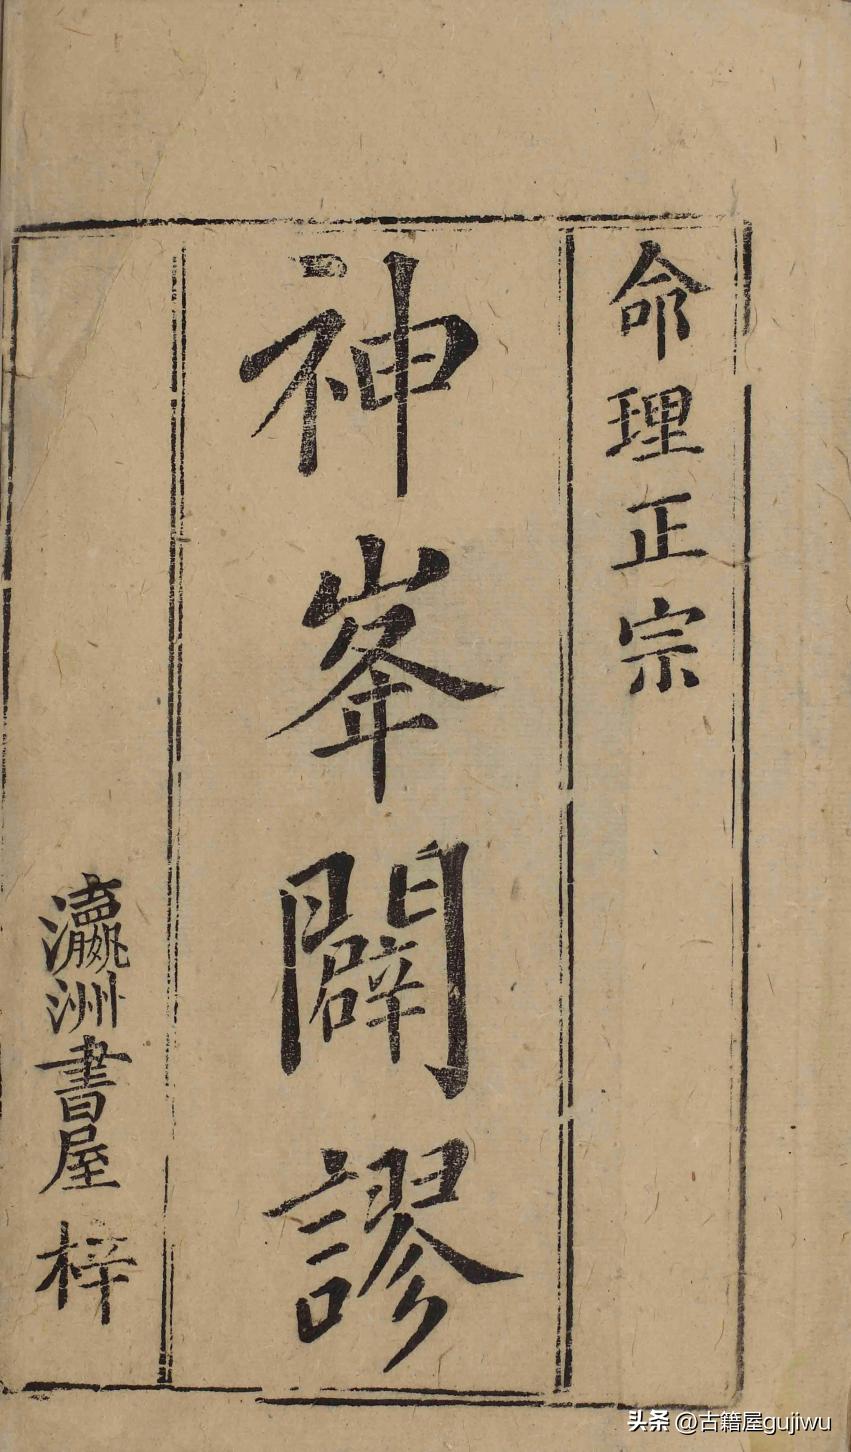 命理正宗
神峯闢謬
瀛洲書屋梓
头条 @古籍屋gujiwu